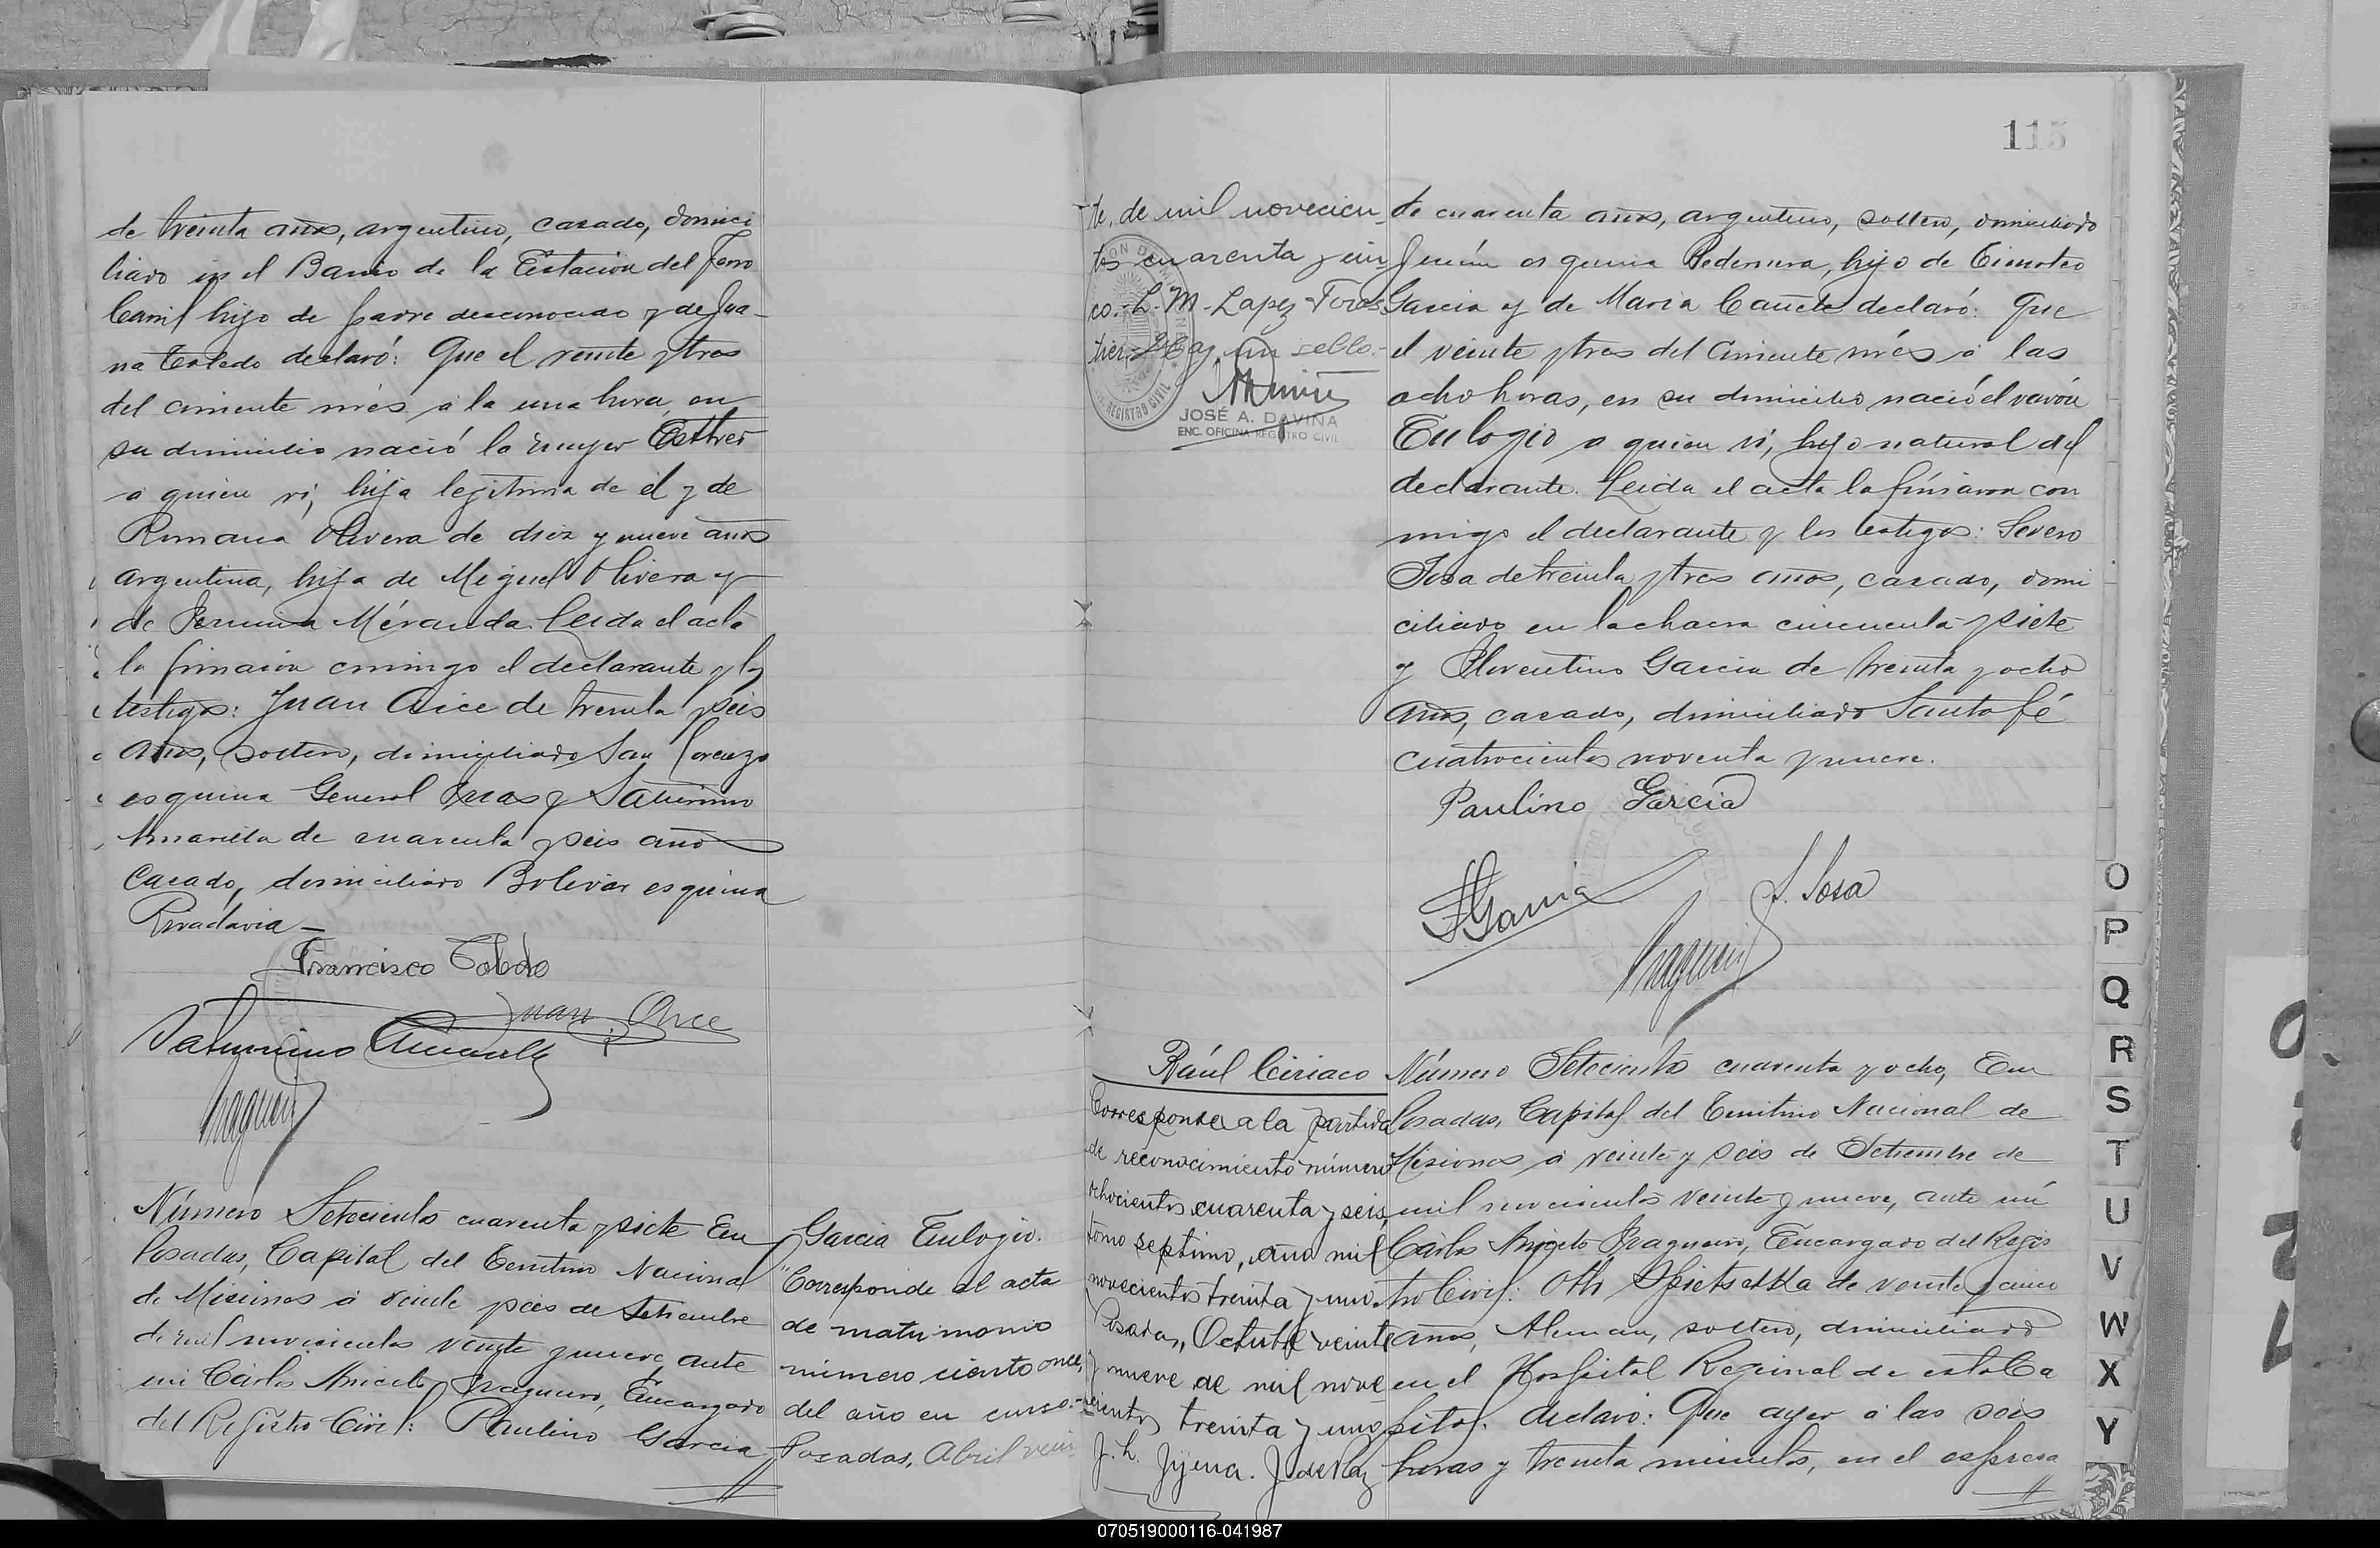 de treinta años, argentino, casado, domici
liado en el Barrio de la Estación del Ferro
Carril hijo de padre desconocido y de Jua-
na Toledo declaró: Que el veinte y tres
del corriente més á la una hora, en
su domicilio nació la mujer Esther
a quien ví, hija legítima de el y de
Romana Olivera de diez y nueve años
argentina, hija de Miguel Olivera y
de Miranda. Leida el acta
la firmaron conmigo el declarante y los
testigos: Juan Arce de treinta y seis
años, soltero, domiciliado San Lorenzo
esquina General y Saturnino
Amarilla de cuarenta y seis años
casado, domiciliado Bolivar esquina
Rivadavia -
Francisco Toledo
Juan Arce
Saturnino
Número Setecientos cuarenta y siete En
Posadas, Capital del Territorio Nacional
de Misiones á veinte y seis de Setiembre
de mil novecientos veinte y nueve, ante
mi Cárlos Aniceto Encargado
del Registro Civil: Paulino Garcia
Garcia Eulogio.
"Corresponde al acta
de matrimonio
número ciento once,
del año en curso.-
Posadas, Abril vein
115
te, de mil novecien
tos cuarenta y cin
co.-L-M-Lopez Torres
Hay un sello.-
REGISTRO CIVIL
JOSÉ A. DAVIÑA
ENC. OFICINA REGISTRO CIVIL
de cuarenta años, argentino, soltero, domiciliado
Junín esquina Pedernera, hijo de Timoteo
Garcia y de Maria Cañete declaró: Que
el veinte y tres del corriente més á las
ocho horas, en su domicilio nació el varón
Eulogio a quien ví, hijo natural del
declarante. Leida el acta la firmaron con
migo el declarante y los testigos: Severo
Sosa de treinta y tres años, casado, domi
ciliado en la chacra cincuenta y siete
y Florentino Garcia de treinta y ocho
años, casado, domiciliado Santa fé
cuatrocientos noventa y nueve.
Paulino Garcia
F Garcia
S. Sosa
Raúl Ciriaco
Corresponde a la partida
de reconocimiento número
ochocientos cuarenta y seis,
tomo septimo, año mil
novecientos treinta y uno.
Posadas, Octubre veinte
y nueve de mil nove
cientos treinta y uno
J. L. Jijena.
Número Setecientos cuarenta y ocho, En
Posadas, Capital del Territorio Nacional de
Misiones á veinte y seis de Setiembre de
mil novecientos veinte y nueve, ante mí
Cárlos Aniceto Encargado del Regis
tro Civil: Oth de veinte y cinco
años, Aleman, soltero, domiciliado
en el Hospital Regional de esta Ca
pital. declaró: Que ayer á las seis
horas y treinta minutos, en el espresa
O
P
Q
R
S
T
U
V
W
X
Y
070519000116-041987